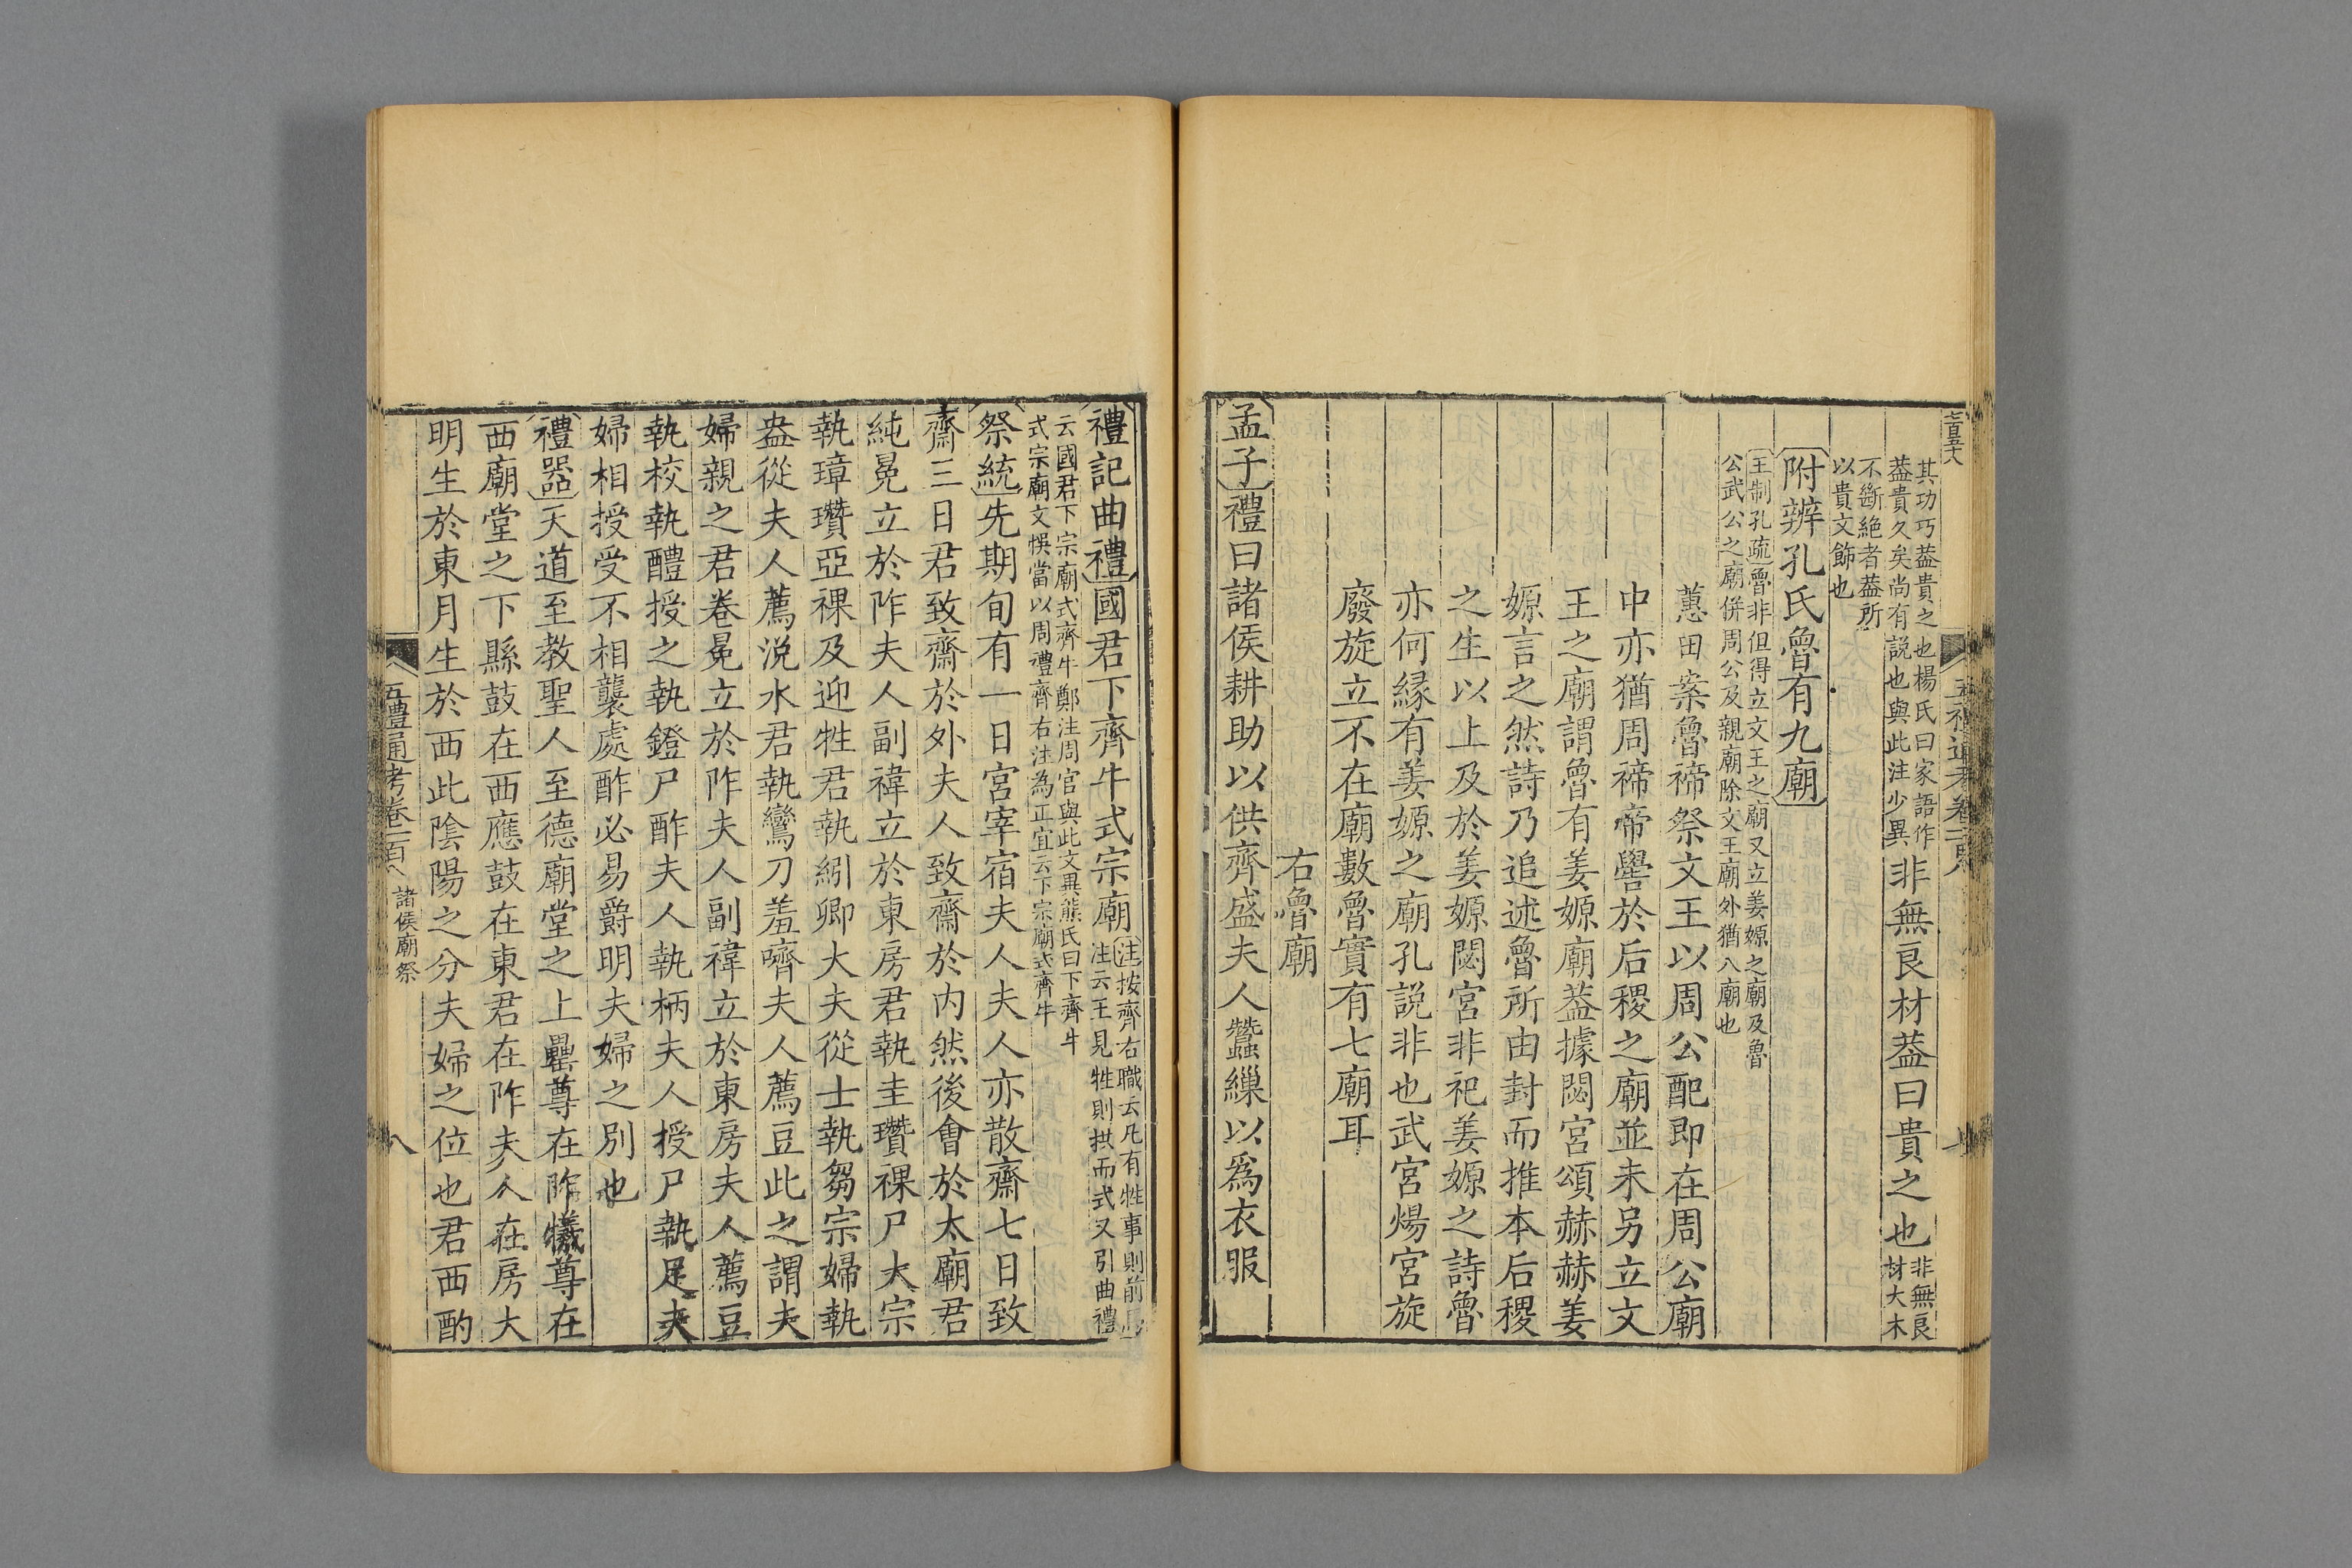 七百五十八
五禮通考卷一百八
其功巧葢貴之也楊氏曰家語作
葢貴久矣尚有說也與此注少異
非無良材葢曰貴之也
非無良
材大木
不斷絶者葢所
以貴文飾也
附辨孔氏魯有九廟
王制孔疏魯非但得立文王之廟又立姜嫄之廟及魯
公武公之廟併周公及親廟除文王廟外猶八廟也
蕙田案魯禘祭文王以周公配即在周公廟
中亦猶周禘帝嚳於后稷之廟並未另立文
王之廟謂魯有姜嫄廟葢據閟宮頌赫赫姜
嫄言之然詩乃追述魯所由封而推本后稷
之生以上及於姜嫄閟宮非祀姜嫄之詩魯
亦何縁有姜嫄之廟孔說非也武宮煬宮旋
廢旋立不在廟數魯實有七廟耳
右魯廟
孟子禮曰諸侯耕助以供齊盛夫人蠶繅以爲衣服
禮記曲禮國君下齊牛式宗廟
注按齊右職云凡有牲事則前馬
注云王見牲則拱而式又引曲禮
云國君下宗廟式齊牛鄭注周官與此文異熊氏曰下齊牛
式宗廟文悞當以周禮齊右注為正宜云下宗廟式齊牛
祭統先期旬有一日宮宰宿夫人夫人亦散齋七日致
齋三日君致齋於外夫人致齋於内然後會於太廟君
純冕立於阼夫人副褘立於東房君執圭瓚祼尸大宗
執璋瓚亞祼及迎牲君執紖卿大夫從士執芻宗婦執
盎從夫人薦涚水君執鸞刀羞嚌夫人薦豆此之謂夫
婦親之君卷冕立於阼夫人副褘立於東房夫人薦豆
執校執醴授之執鐙尸酢夫人執柄夫人授尸執足夫
婦相授受不相襲處酢必易爵明夫婦之別也
禮器天道至教聖人至德廟堂之上罍尊在阼犧尊在
西廟堂之下縣鼓在西應鼓在東君在阼夫人在房大
明生於東月生於西此陰陽之分夫婦之位也君西酌
五禮通考卷一百八
諸侯廟祭
八